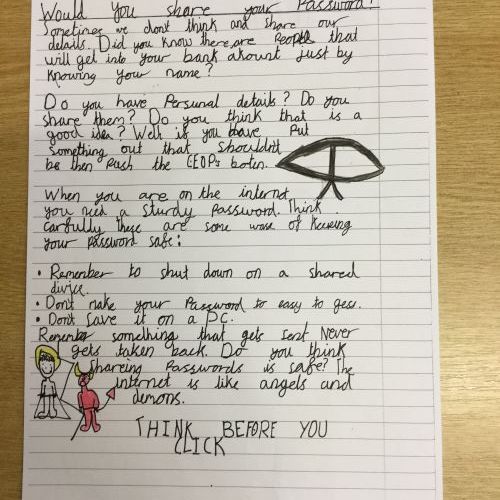 Would you share your Password?
Sometines we dont think and share our
details. Did you know there are People that
will get into your bank akount just by
knowing your name?
Do you have Personal details? Do you
share them? Do you think that is a
good idea? Well is you have Put
something out that shouldn't
be then Push the CEOPs boten.
When you are on the internet
you need a sturdy Password. Think
carfully these are some wase of keeping
your Password safe:
• Remember to shut down on a shared
divice.
• Don't make your Password to easy to gess.
• Don't save it on a PC.
Remember something that gets sent Never
gets taken back. Do you think
shareing Passwords is safe? The
internet is like angels and
demons.
THINK BEFORE YOU
CLICK